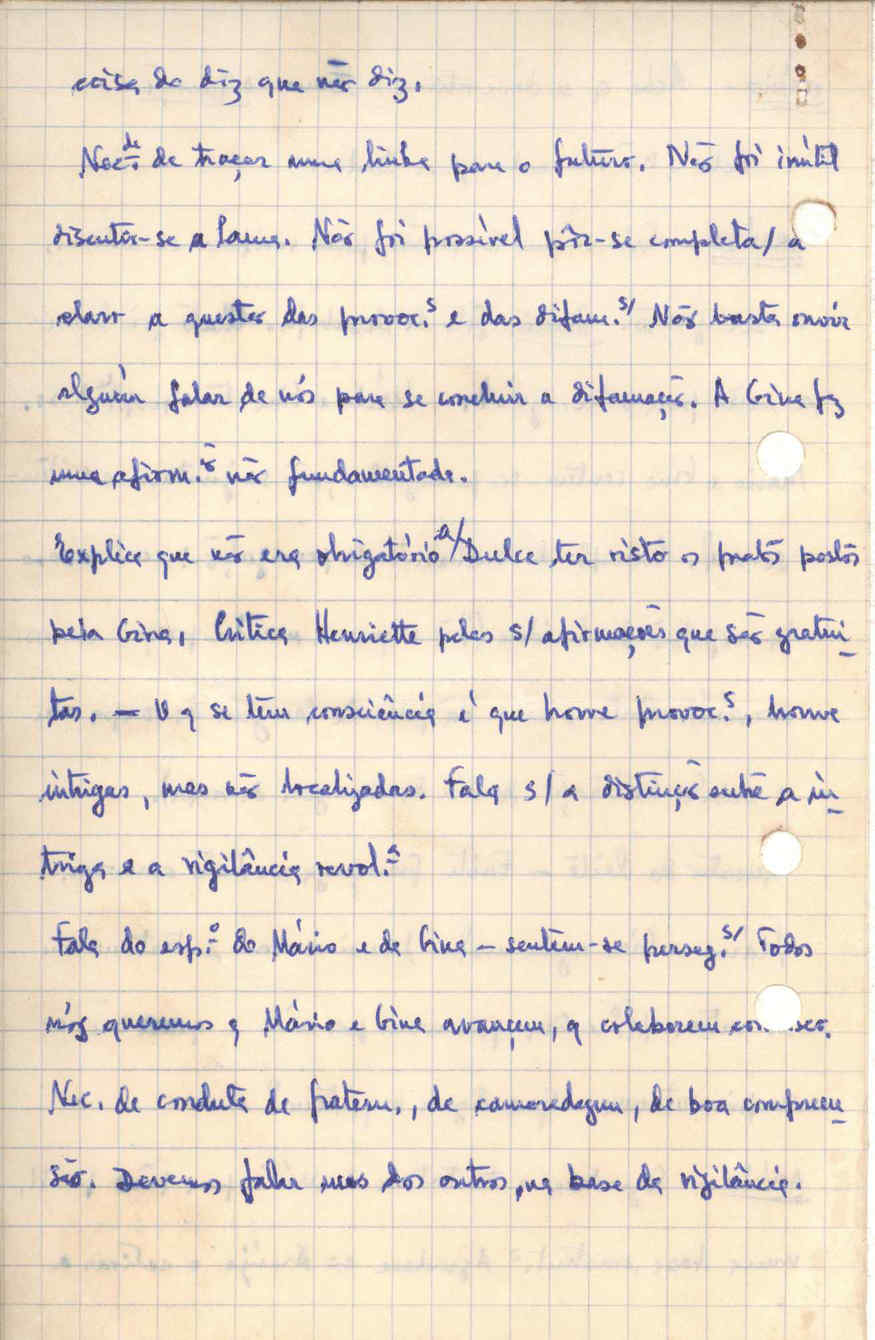 coisa do diz que não diz.
Nec.de de traçar uma linha para o futuro. Não foi inútil
discutir-se a Lama. Não foi possível pôr-se completa/ a
claro a questão das provoc.s e das difam.s/ Não basta ouvir
alguém falar de nós para se concluir a difamação. A Gina fez
uma afirm.ão não fundamentada.
Explica que não era obrigatório a/ Dulce ter visto os pratos postos
pela Gina, Critica Henriette pelas s/ afirmações que são gratui-
tas. — O q se têm consciência é que houve provoc.s, houve
intrigas, mas não localizadas. Fala s/ a distinção entre a in-
triga e a vigilância revol.a
Fala do esp.o do Mário e da Gina — sentem-se perseg.s/ Todos
nós queremos q Mário e Gina avançem, q colaborem co sco.
Nec. de conduta de fratern., de camaradagem, de boa compreen-
são. Devemos falar uns dos outros, na base da vigilância.